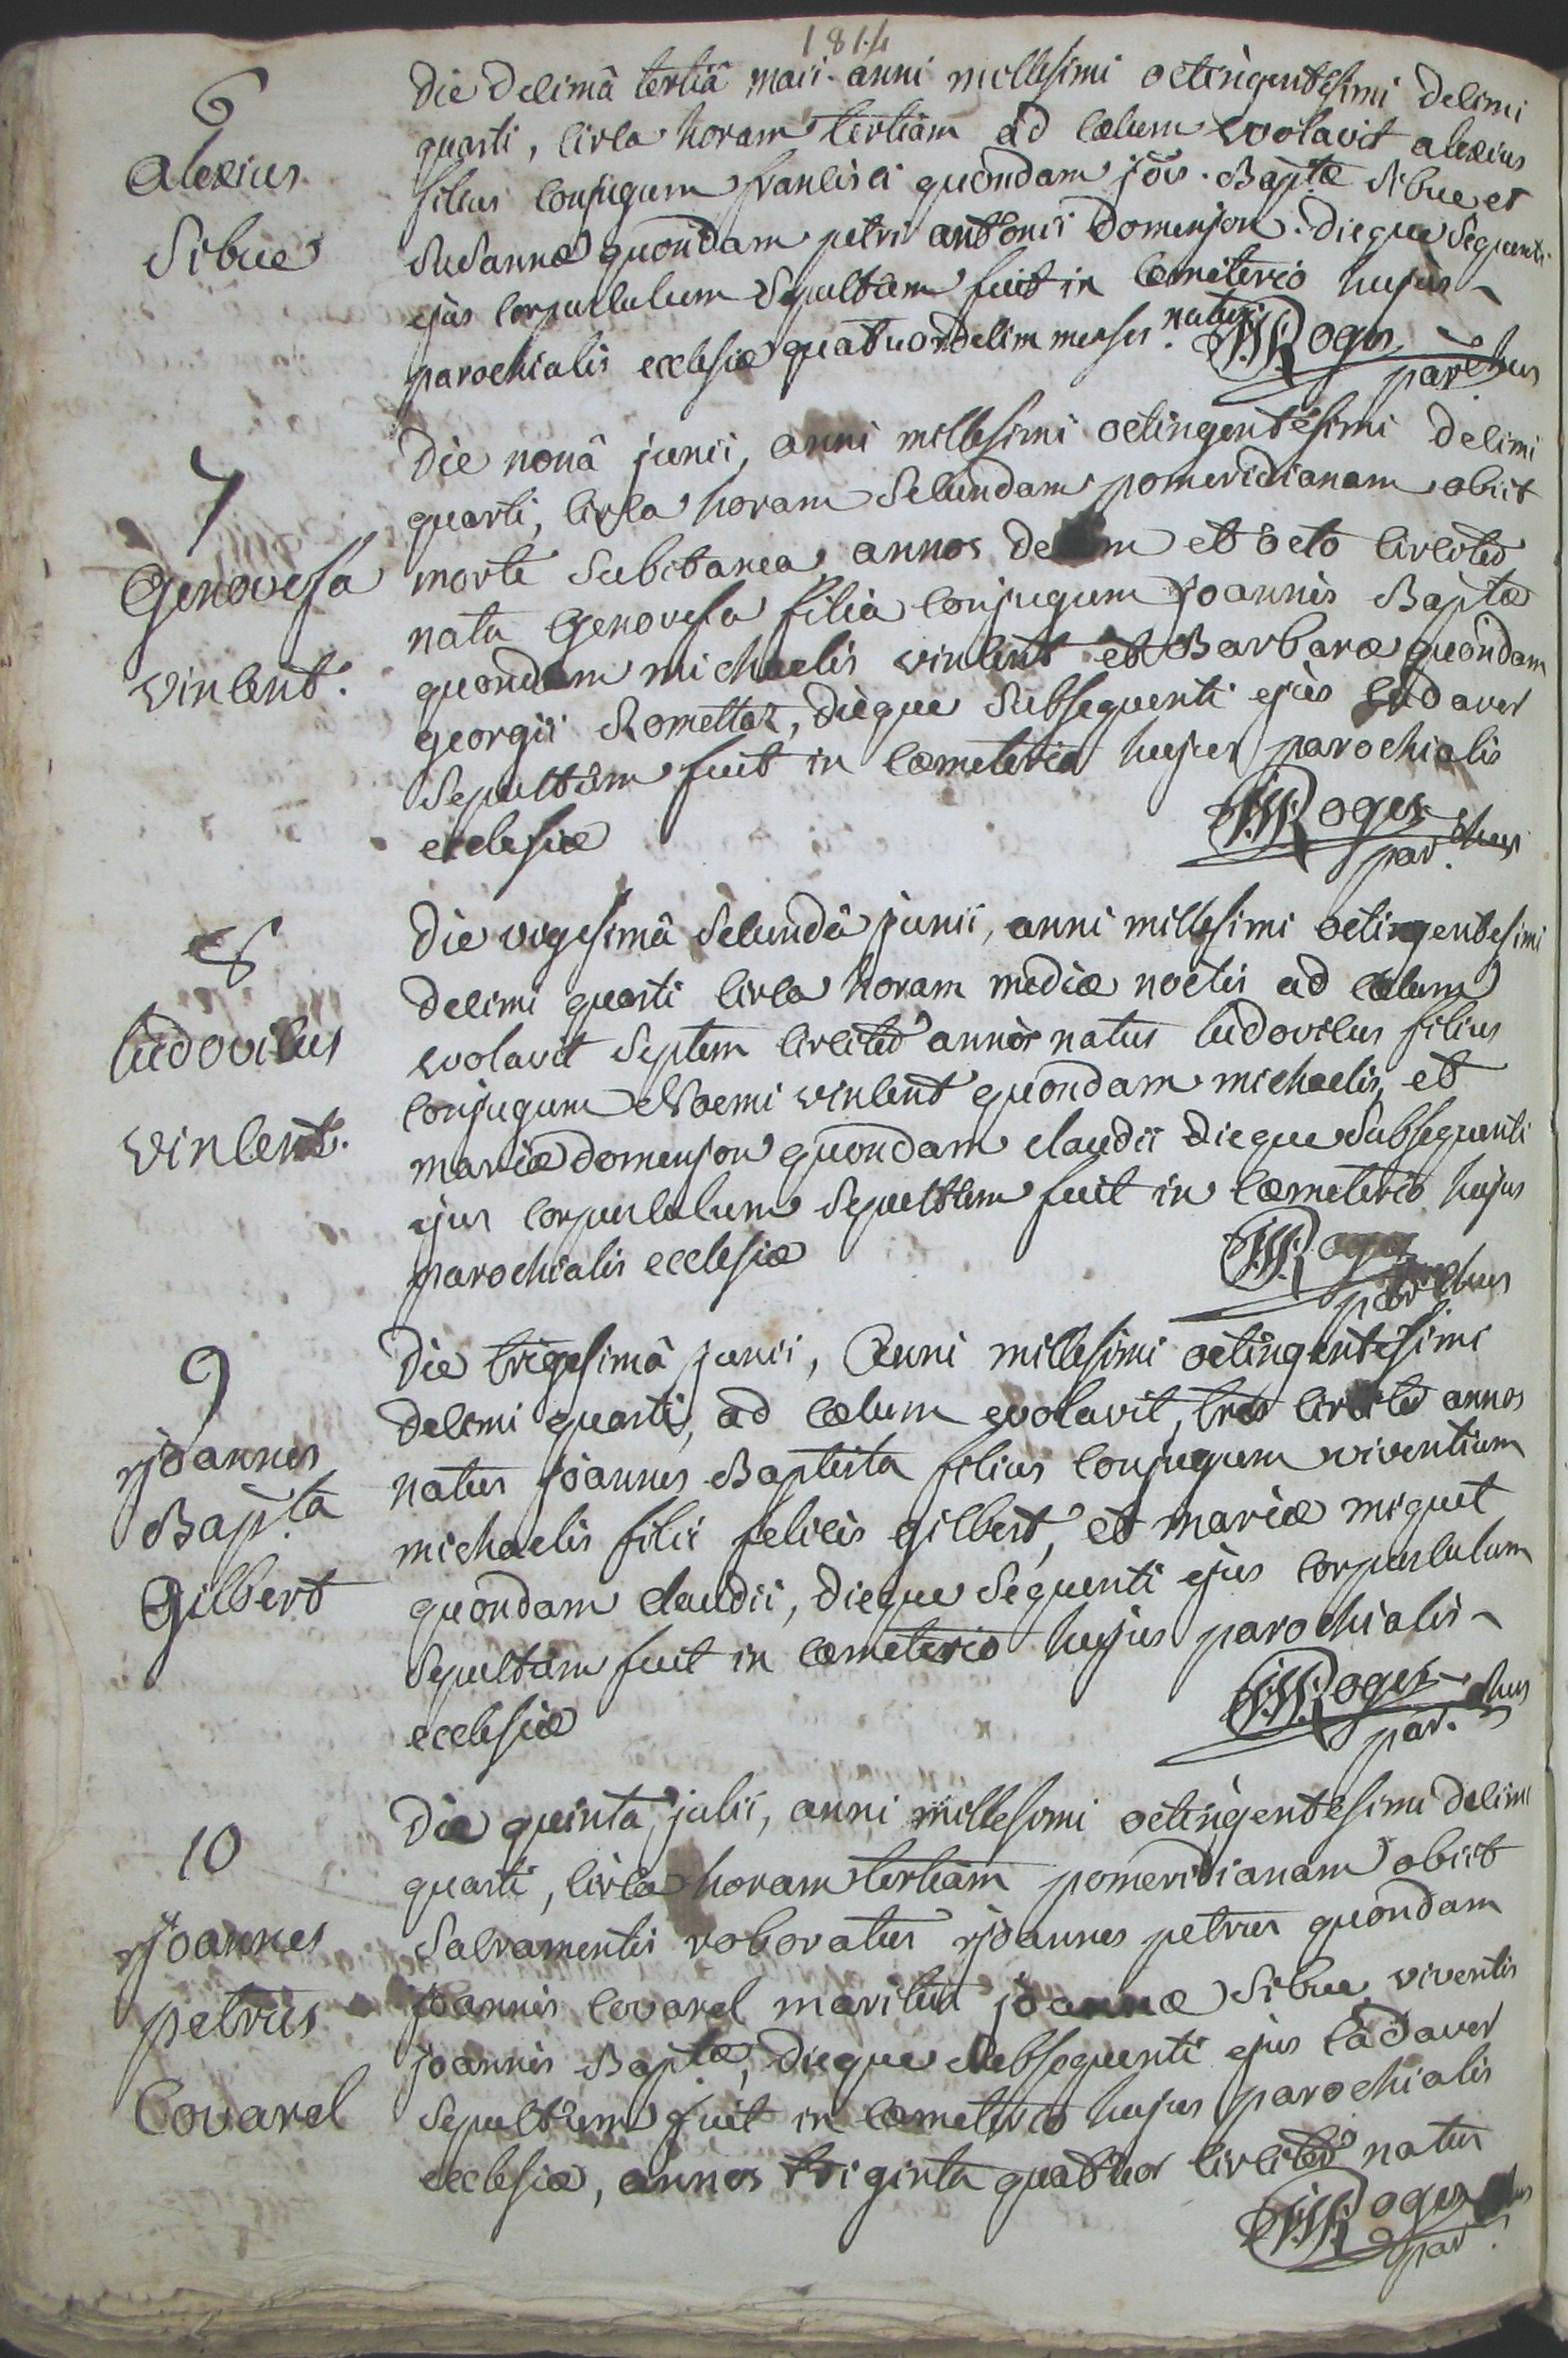 1814
6
Alexius
Sibue
Die decimâ tertiâ maii anni millesimi octingentesimi decimi
quarti, circa horam tertiam ad cælum evolavit alexius
filius conjugum francisci quondam jöis. Baptæ Sibue et
Susannæ quondam petri antonii Domenjon. dieque Sequenti
ejus corpusculum Sepultum fuit in cæmeterio hujus
parochialis ecclesiæ quatuordecim menses natus.
Roger
parochus
7
Genovefa
vincent.
Die nonâ junii, anni millesimi octingentesimi decimi
quarti, circa horam Secundam pomeridianam obiit
morte Subitanea annos decem et octo circiter
nata Genovefa filia conjugum Joannis Baptæ
quondam michaelis vincent et Barbaræ quondam
georgii Romettaz, dieque Subsequenti ejus cadaver
Sepultum fuit in cæmeterio hujus parochialis
ecclesiæ
Roger
par.chus
8
ludovicus
vincent.
Die vigesimâ Secundâ junii, anni millesimi octingentesimi
decimi quarti circa horam mediæ noctis ad cælum
evolavit Septem circiter annos natus ludovicus filius
conjugum Noemi vincent quondam michaelis, et
mariæ domenjon quondam claudii dieque Subsequenti
ejus corpusculum Sepultum fuit in cæmeterio hujus
parochialis ecclesiæ
Roger
parochus
9
joannes
Bapta
Gilbert
Die trigesimâ junii, Anni millesimi octingentesimi
decimi quarti, ad cælum evolavit, tres circiter annos
natus joannes Baptista filius conjugum viventium
michaelis filii felicis gilbert, et mariæ miquet
quondam claudii, dieque Sequenti ejus corpusculum
Sepultum fuit in cæmeterio hujus parochialis
ecclesiæ
Roger
par.chus
10
joannes
petrus
Covarel
Die quinta julii, anni millesimi octingentesimi decimi
quarti, circa horam tertiam pomeridianam obiit
Sacramentis roboratus joannes petrus quondam
joannis covarel maritus joannæ Sibue viventis
joannis Baptæ, dieque Subsequenti ejus cadaver
Sepultum fuit in cæmeterio hujus parochialis
ecclesiæ, annos triginta quatuor circiter natus
Roger
par.chus